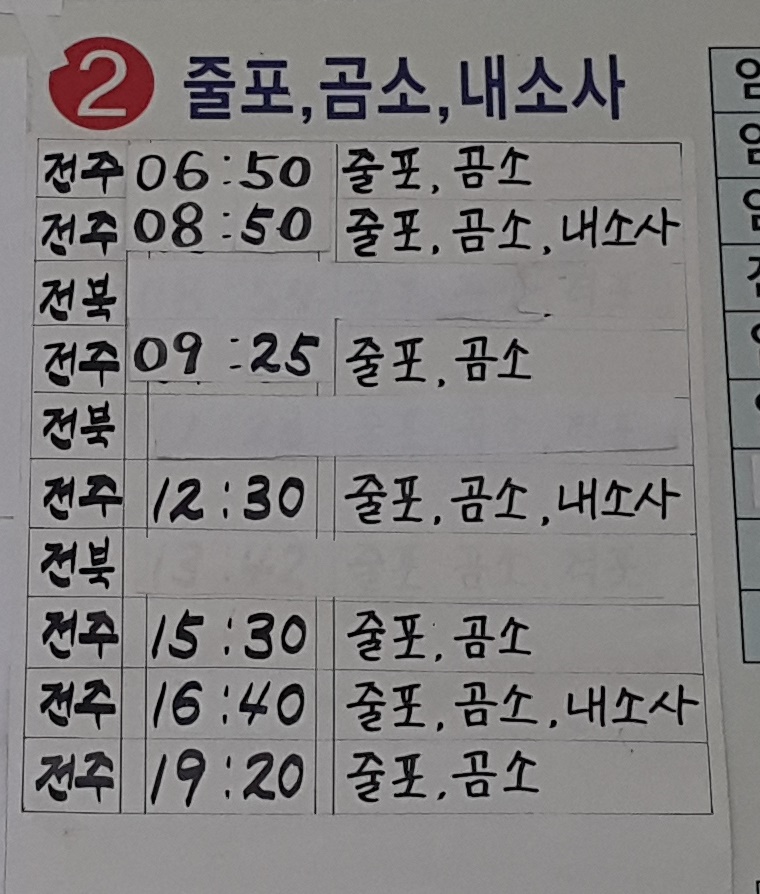 2 줄포,곰소,내소사
전주 06:50 줄포, 곰소
전주 08:50 줄포, 곰소, 내소사
전북
전주 09:25 줄포, 곰소
전북
전주 12:30 줄포, 곰소, 내소사
전북
전주 15:30 줄포, 곰소
전주 16:40 줄포, 곰소, 내소사
전주 19:20 줄포, 곰소